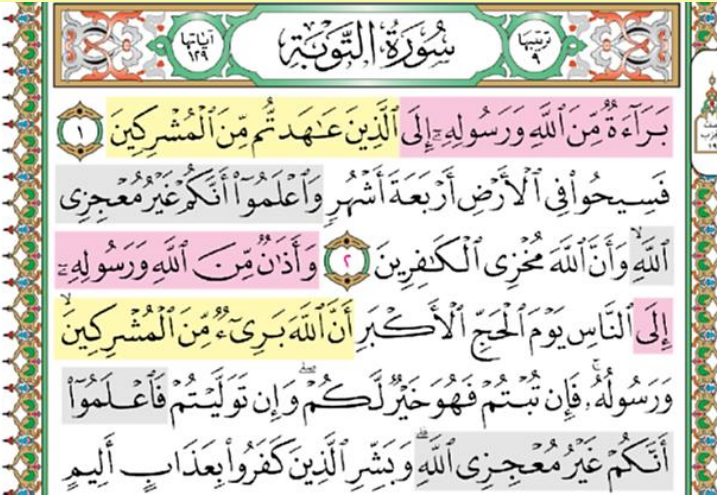 ترتيبها ٩ سُورَةُ التَّوْبَةِ آياتها ١٢٩
بَرَآءَةٌ مِّنَ ٱللَّهِ وَرَسُولِهِۦٓ إِلَى ٱلَّذِينَ عَـٰهَدتُّم مِّنَ ٱلْمُشْرِكِينَ ١
فَسِيحُوا۟ فِى ٱلْأَرْضِ أَرْبَعَةَ أَشْهُرٍ وَٱعْلَمُوٓا۟ أَنَّكُمْ غَيْرُ مُعْجِزِى
ٱللَّهِ ۙ وَأَنَّ ٱللَّهَ مُخْزِى ٱلْكَـٰفِرِينَ ٢ وَأَذَٰنٌ مِّنَ ٱللَّهِ وَرَسُولِهِۦٓ
إِلَى ٱلنَّاسِ يَوْمَ ٱلْحَجِّ ٱلْأَكْبَرِ أَنَّ ٱللَّهَ بَرِىٓءٌ مِّنَ ٱلْمُشْرِكِينَ ۙ
وَرَسُولُهُۥ ۚ فَإِن تُبْتُمْ فَهُوَ خَيْرٌ لَّكُمْ ۖ وَإِن تَوَلَّيْتُمْ فَٱعْلَمُوٓا۟
أَنَّكُمْ غَيْرُ مُعْجِزِى ٱللَّهِ ۗ وَبَشِّرِ ٱلَّذِينَ كَفَرُوا۟ بِعَذَابٍ أَلِيمٍ